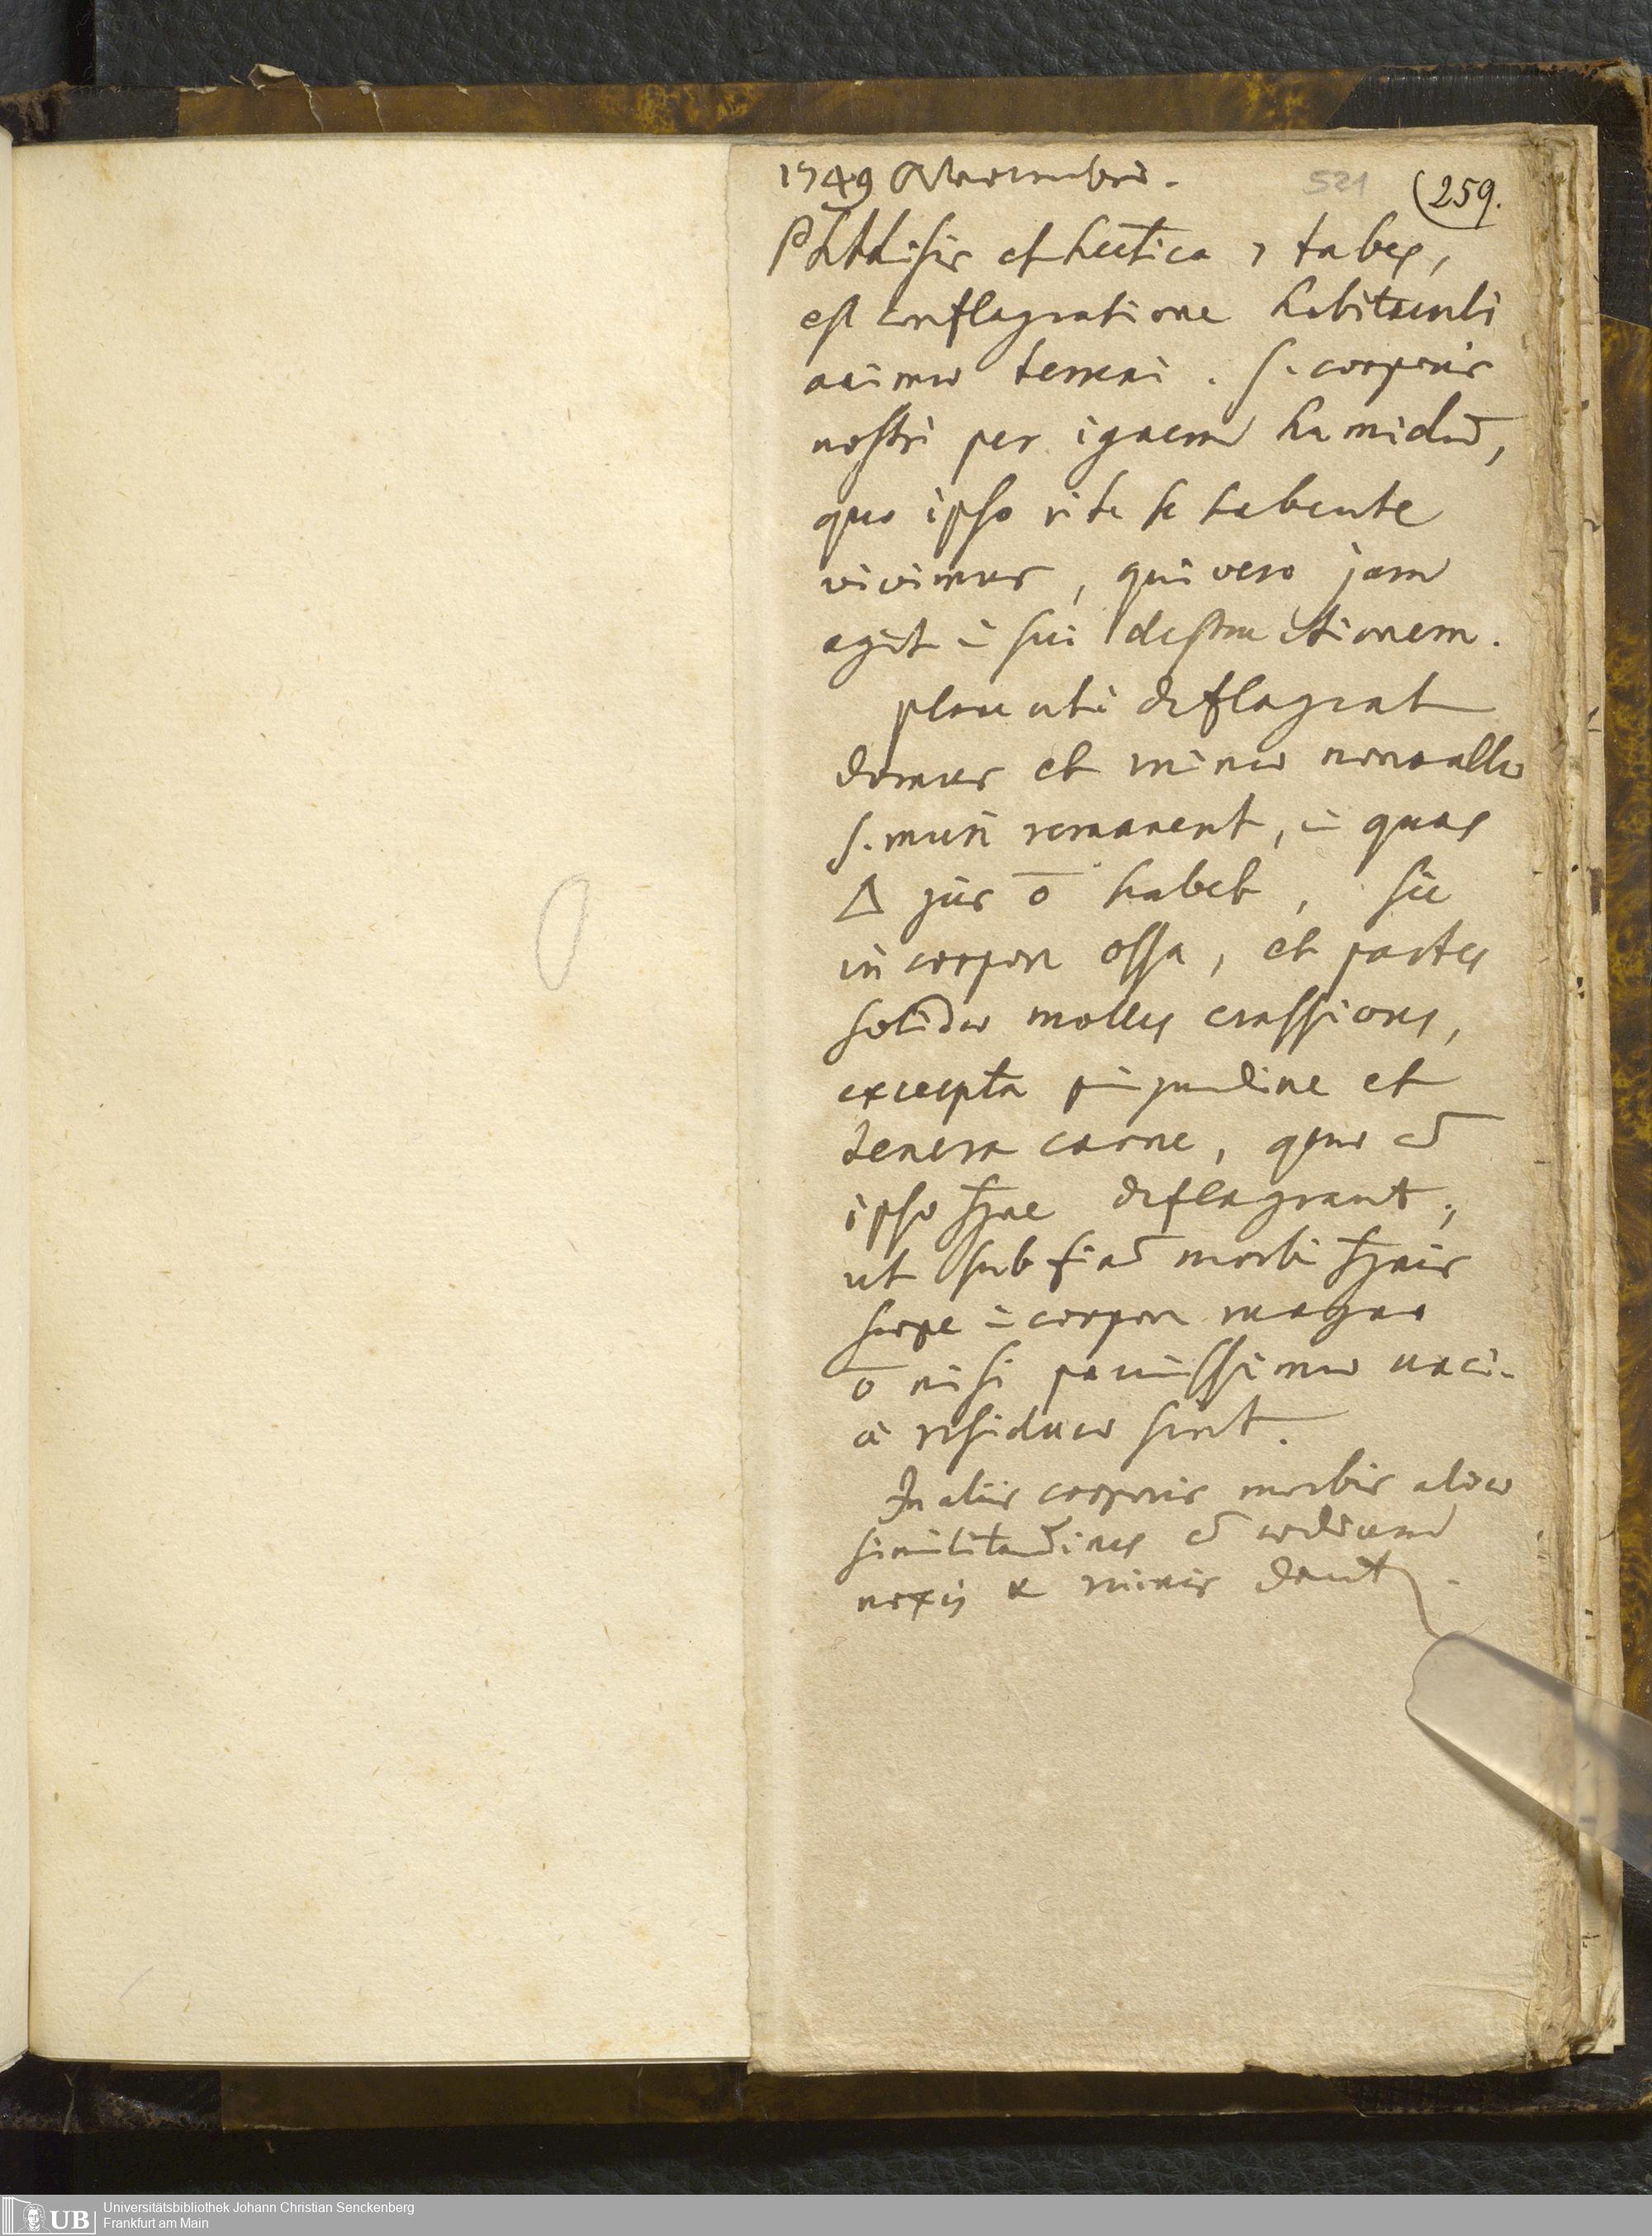 1749 Novembri. 521 (259.
Phthisis et hectica, tabes,
est conflagratione habitaculi
animae terreni. s. corporis
nostri per ignem humidū,
quo ipso rite se habente
vivimus, qui vero jam
agit ī sui destructionem.
plane uti deflagrat
domus et ruinae nonnullae
s. muri remanent, ī quas
△ jus ō habet, sic
in corpore ossa, et partes
solidae molles crassiores,
excepta pinguedine et
tenera carne, quae cū
ipso deflagrant,
ut sub finē morbi
saepe ī corpore magno
ō nisi paucissimae unci-
ae residuae sint.
In aliis corporis morbis aliae
similitudines cū
noxis & ruinis dantur.
Universitätsbibliothek Johann Christian Senckenberg
Frankfurt am Main
UB